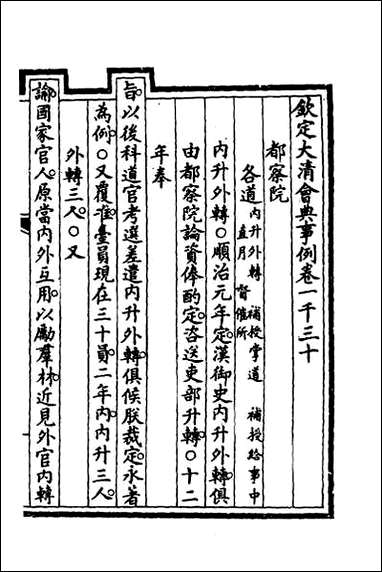 欽定大清會典事例卷一千三十
都察院
各道 内升外轉 補授掌道 補授給事中
直月 督催所
内升外轉○順治元年定漢御史内升外轉俱
由都察院論資俸酌定咨送吏部升轉○十二
年奉
旨以後科道官考選差遣内升外轉俱候朕裁定永著
為例○又覆准臺員現在三十員二年内内升三人
外轉三人○又
諭國家官人原當内外互用以勵羣材近見外官内轉